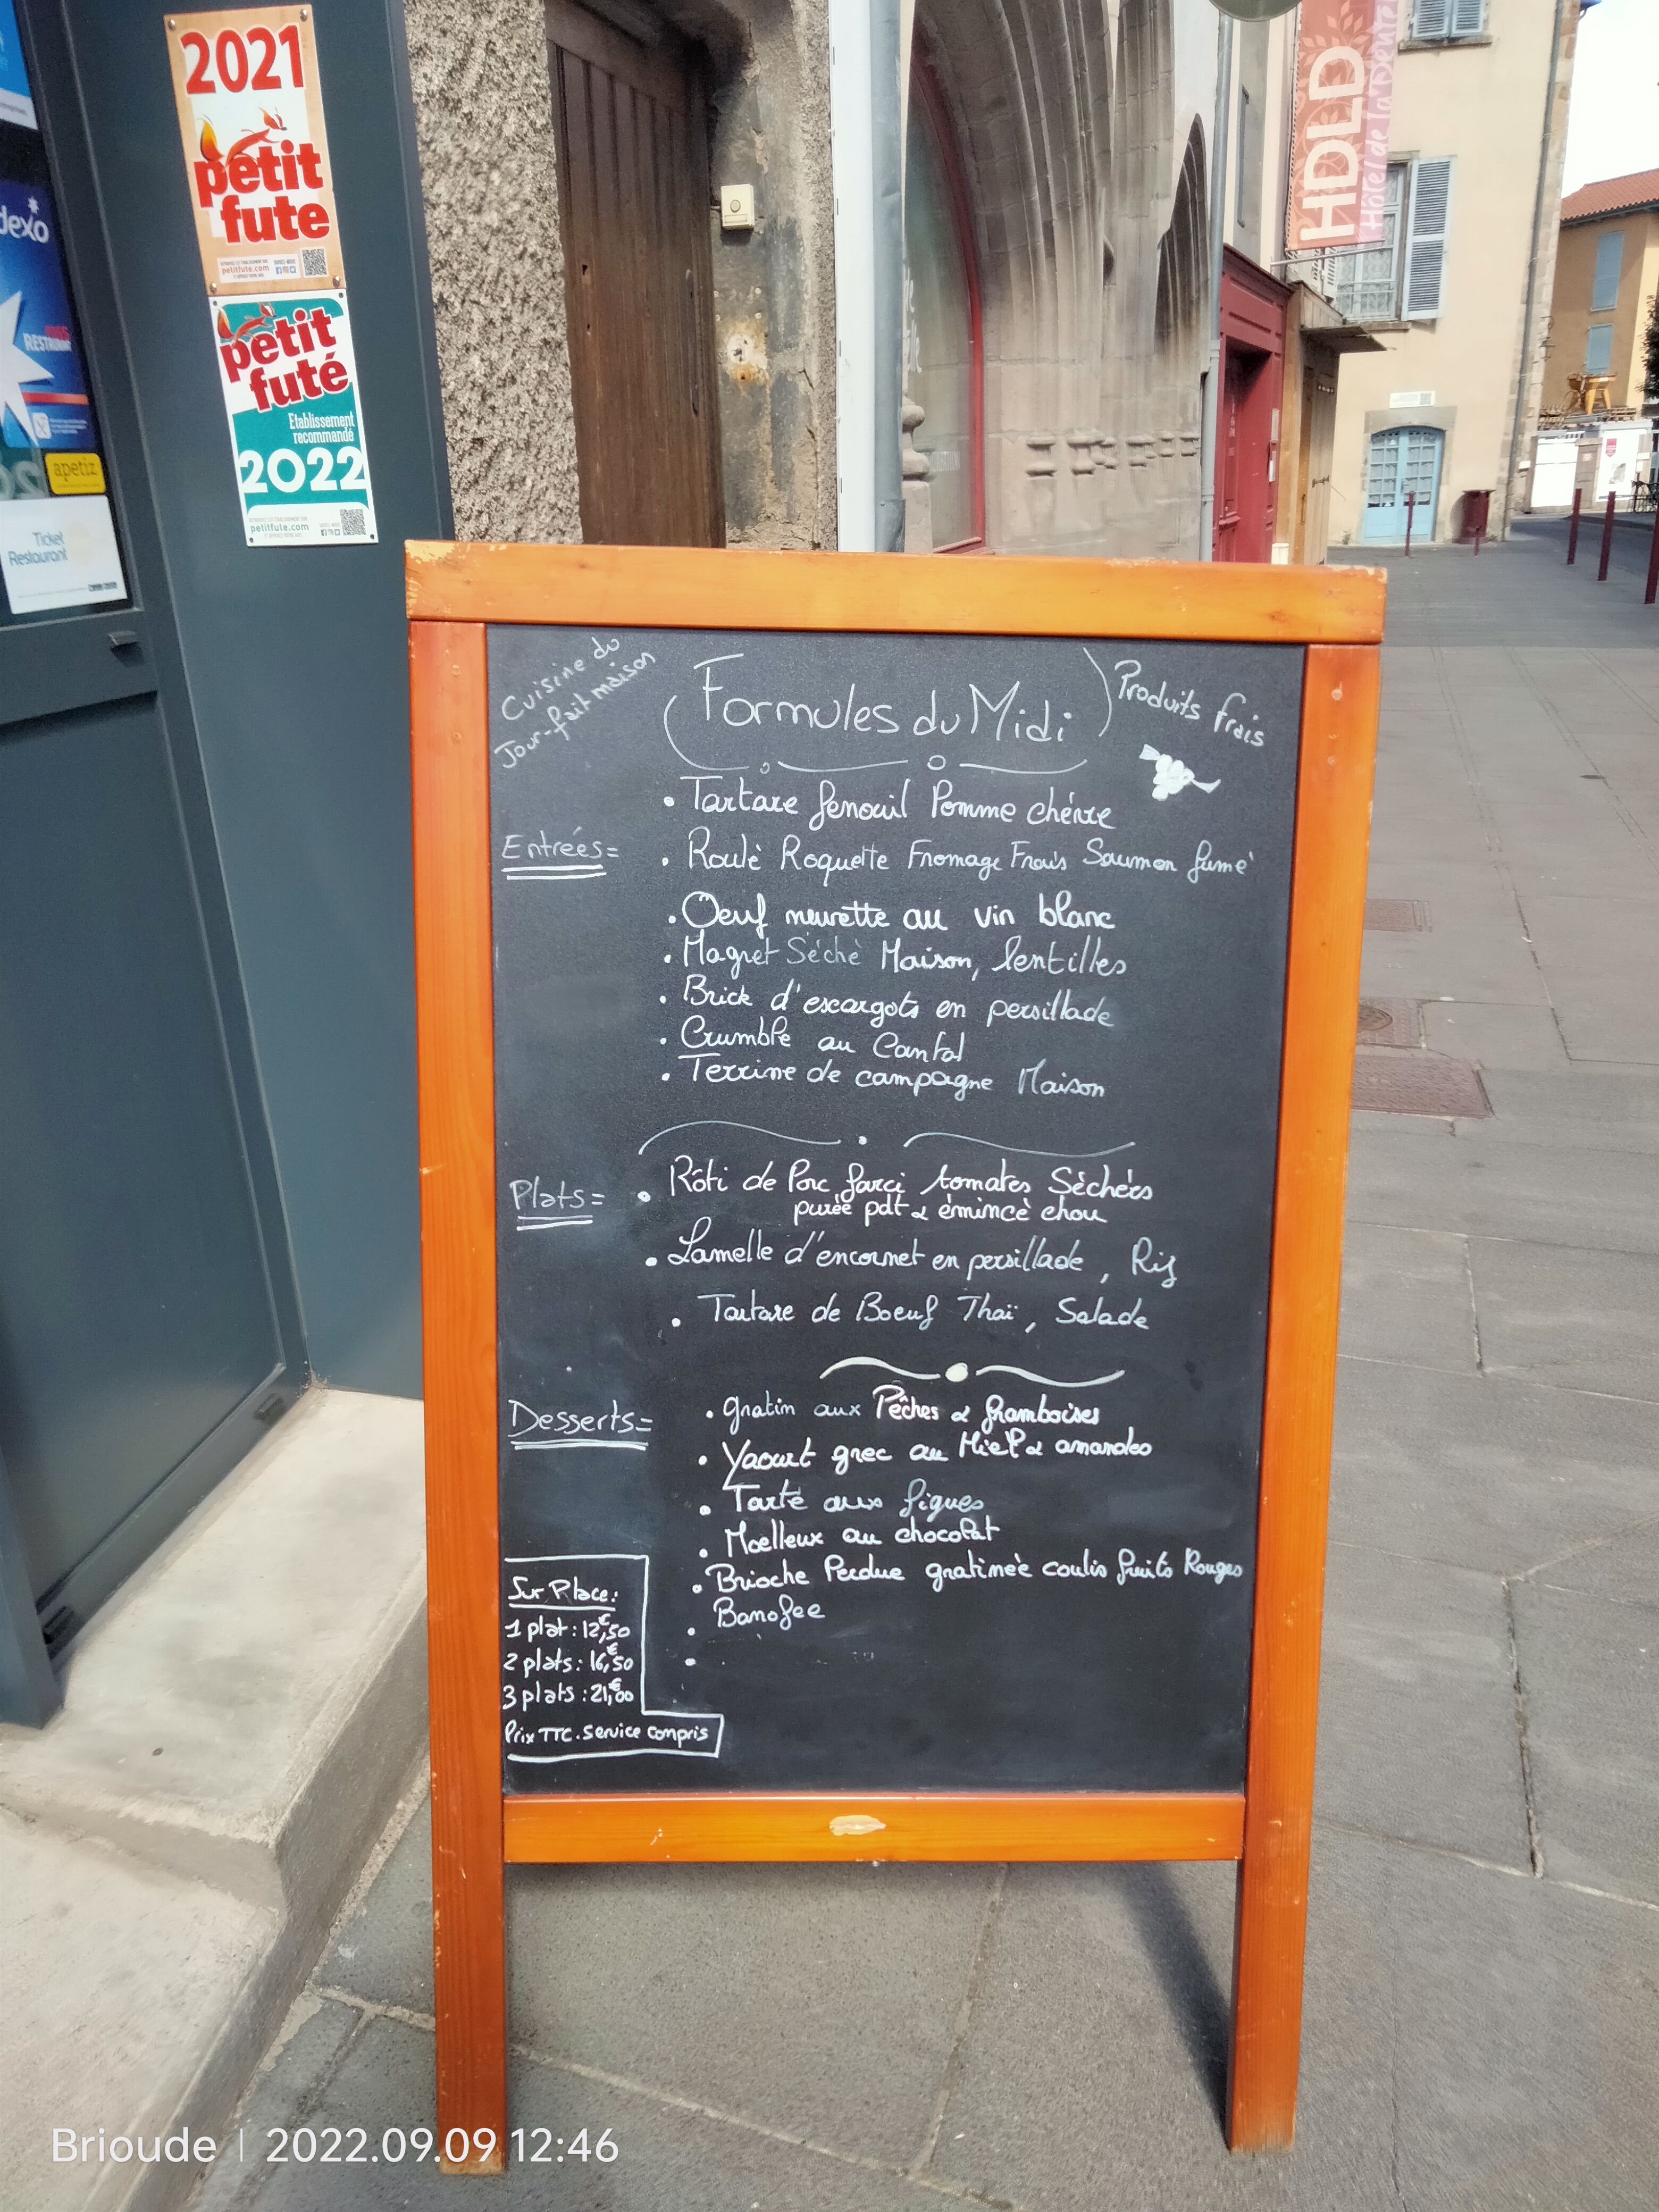 2021
petit
fute
petitfute.com
petit
futé
Etablissement
recommandé
2022
petitfute.com
dexo
RESTAURANT
apetiz
Ticket
Restaurant
HDLD
Hôtel de la Dentelle
Cuisine du
Jour-fait maison
Formules du Midi
Produits frais
Entrées=
• Tartare fenouil Pomme chèvre
• Roulé Roquette Fromage Frais Saumon fumé
• Oeuf meurette au vin blanc
• Magret Séché Maison, lentilles
• Brick d'escargots en persillade
• Crumble au Cantal
• Terrine de campagne Maison
Plats=
• Rôti de Porc farci tomates Séchées
purée pdt & émincé chou
• Lamelle d'encornet en persillade, Riz
• Tartare de Boeuf Thaï, Salade
Desserts=
• gratin aux Pêches & framboises
• Yaourt grec au Miel & amandes
• Tarte aux figues
• Moelleux au chocolat
• Brioche Perdue gratinée coulis fruits Rouges
• Banofee
Sur Place:
1 plat: 12,€50
2 plats: 16,€50
3 plats: 21,€00
Prix TTC. Service compris
Brioude | 2022.09.09 12:46